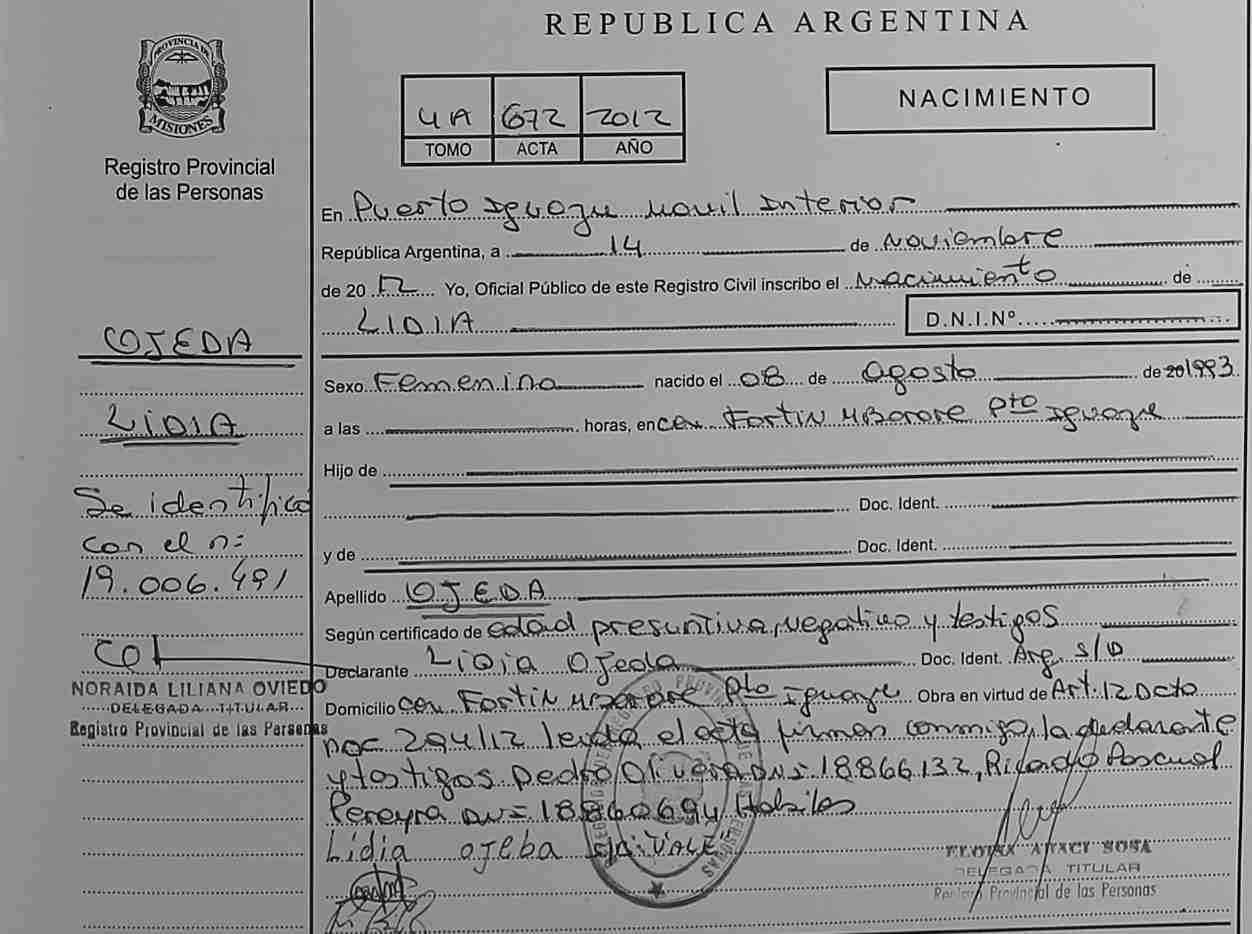 REPUBLICA ARGENTINA
PROVINCIA DE
MISIONES
Registro Provincial
de las Personas
4A 672 2012
TOMO ACTA AÑO
NACIMIENTO
En Puerto Iguazu Movil Interior
República Argentina, a 14 de Noviembre
de 20 12 Yo, Oficial Público de este Registro Civil inscribo el Nacimiento de
LIDIA D.N.I.Nº
Sexo Femenino nacido el 08 de Agosto de 201993
a las horas, en Fortin Mborore Pto Iguazu
Hijo de
Doc. Ident.
y de Doc. Ident.
Apellido OJEDA
Según certificado de edad presuntiva, negativo y testigos
Declarante Lidia Ojeda Doc. Ident. Arg. S/D
Domicilio Fortin Mborore Pto Iguazu Obra en virtud de Art. 12 Dcto
nac 294/12 leida el acta firman conmigo, la declarante
y testigos Pedro Olivera DNI 18866132, Ricardo Pascual
Pereyra DNI 18860694 Habiles
Lidia ojeba VALE
OJEDA
LIDIA
Se identificó
con el n:
19.006.491
NORAIDA LILIANA OVIEDO
DELEGADA TITULAR
Registro Provincial de las Personas
SOSA
DELEGADA TITULAR
Registro Provincial de las Personas